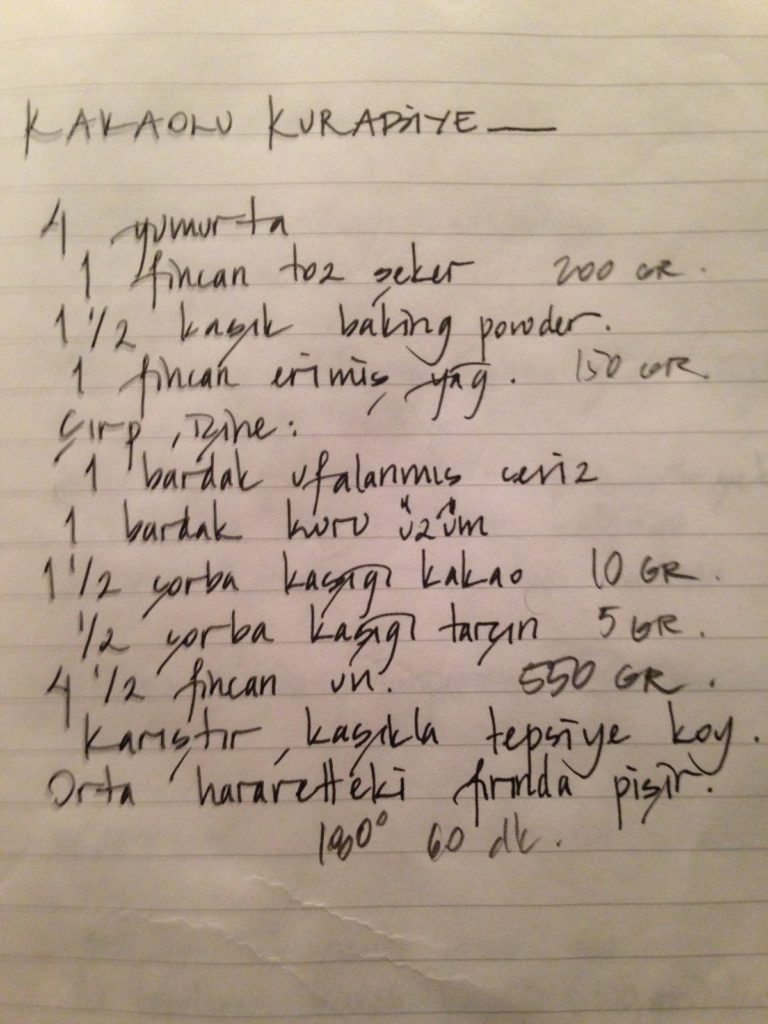 KAKAOLU KURABİYE
4 yumurta
1 fincan toz şeker 200 GR.
1 1/2 kaşık baking powder.
1 fincan erimiş yağ. 150 GR.
Çırp, içine:
1 bardak ufalanmış ceviz
1 bardak kuru üzüm
1 1/2 çorba kaşığı kakao 10 GR.
1/2 çorba kaşığı tarçın 5 GR.
4 1/2 fincan un. 550 GR.
Karıştır, kaşıkla tepsiye koy.
Orta hararetteki fırında pişir.
180° 60 dk.